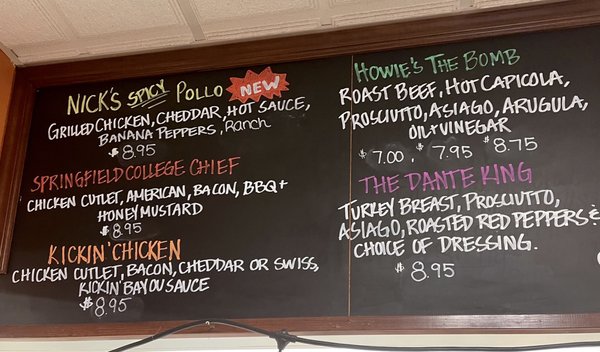 NICK'S SPICY POLLO NEW
GRILLED CHICKEN, CHEDDAR, HOT SAUCE,
BANANA PEPPERS, Ranch
$8.95
SPRINGFIELD COLLEGE CHIEF
CHICKEN CUTLET, AMERICAN, BACON, BBQ +
HONEY MUSTARD
$8.95
KICKIN' CHICKEN
CHICKEN CUTLET, BACON, CHEDDAR OR SWISS,
KICKIN BAYOU SAUCE
$8.95
HOWIE'S THE BOMB
ROAST BEEF, HOT CAPICOLA,
PROSCIUTTO, ASIAGO, ARUGULA,
OIL+VINEGAR
$7.00 $7.95 $8.75
THE DANTE KING
TURKEY BREAST, PROSCIUTTO,
ASIAGO, ROASTED RED PEPPERS &
CHOICE OF DRESSING.
$8.95